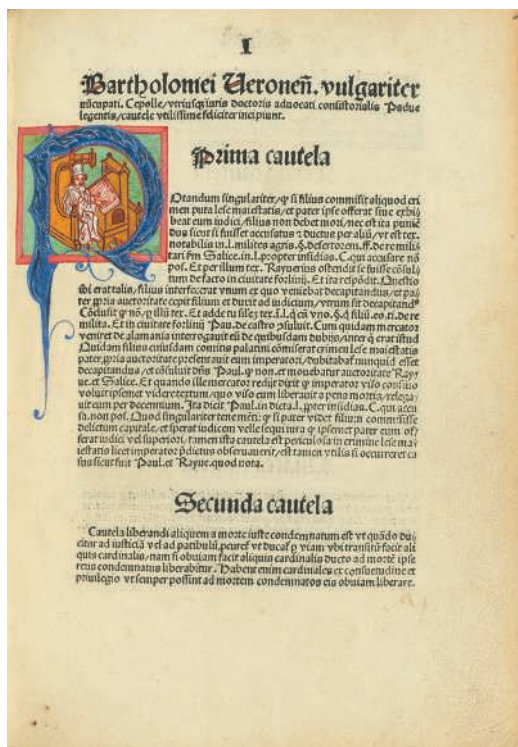 I
Bartholomei Veroneñ. vulgariter
nũcupati. Cepolle/vtriusqꝫ iuris doctoris advocati consistorialis Padue
legentis/cautele vtilissime feliciter incipiunt.
Prima cautela
Notandum singulariter/ꝙ si filius commisit aliquod cri
men puta lese maiestatis/et pater ipse offerat siue exhi
beat eum iudici/filius non debet mori/nec est ita puniẽ
dus sicut si fuisset accusatus ⁊ ductus per aliũ/vt est tex.
notabilis in.l.milites agrũ.§.desertorem.ff.de re mili
tari fm Salice.in.l.propter insidias.C.qui accusare nõ
pos. Et per illum tex. Raynerius ostendit se fuisse cõsul
tum de facto in ciuitate forliuij. Et ita respõdit. Questio
filius interfecerat vnum et quo veniebat decapitandus/et pa
ter ꝓpria auctoritate cepit filium et duxit ad iudicium/vtrum sit decapitand⁹
milita. Et in ciuitate forliuij Pau.de castro ꝯsuluit. Cum quidam mercator
veniret de alamania interrogauit eũ de quibusdam dubijs/inter q̃ erat istud
Quidam filius cuiusdam comitis palatini cõmiserat crimen lese maiestatis
pater ꝓpria auctoritate presentauit eum imperatori/dubitabat nunquid esset
decapitandus/et cõsuluit dñs Paul. ꝙ non/et mouebatur auctoritate Ray
ne.et Salice. Et quando ille mercator redijt dixit ꝙ imperator viso consilio
voluit ipsemet videre textum/quo viso eum liberauit a pena mortis/relega
uit eum per decennium. Ita dicit Paul.in dicta.l.ꝓpter insidias.C.qui accu
sa.non pos. Quod singulariter tene mẽti: ꝙ si pater videt filium commisisse
delictum capitale/et sperat iudicem velle sequi iura ꝙ ipsemet pater eum of
ferat iudici vel superiori/tamen ista cautela est periculosa in crimine lese ma
iestatis licet imperator p̃dictus obseruauerit/est tamen vtilis si occurreret ca
sus sicut fuit Paul.et Rayne.quod nota.
Secunda cautela
Cautela liberandi aliquem a morte iuste condemnatum est vt quãdo du
citur ad iusticiã vel ad patibulũ ꝓcuret vt ducat ꝑ viam vbi transitũ facit ali
quis cardinalis/nam si obuiam facit aliquis cardinalis ducto ad mortẽ ipse
reus condemnatus liberabitur. Habent enim cardinales ex consuetudine et
priuilegio vt semper possint ad mortem condemnatos eis obuiam liberare.